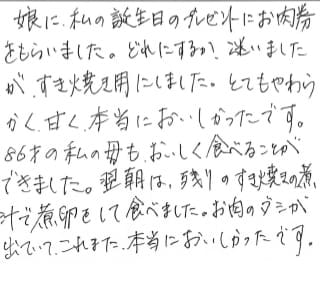 娘に、私の誕生日のプレゼントにお肉券
をもらいました。どれにするか、迷いました
が、すき焼き用にしました。とてもやわら
かく、甘く、本当においしかったです。
86才の私の母も、おいしく食べることが
できました。翌朝は、残りのすき焼きの煮
汁で煮卵をして食べました。お肉のダシが
出ていて、これまた、本当においしかったです。